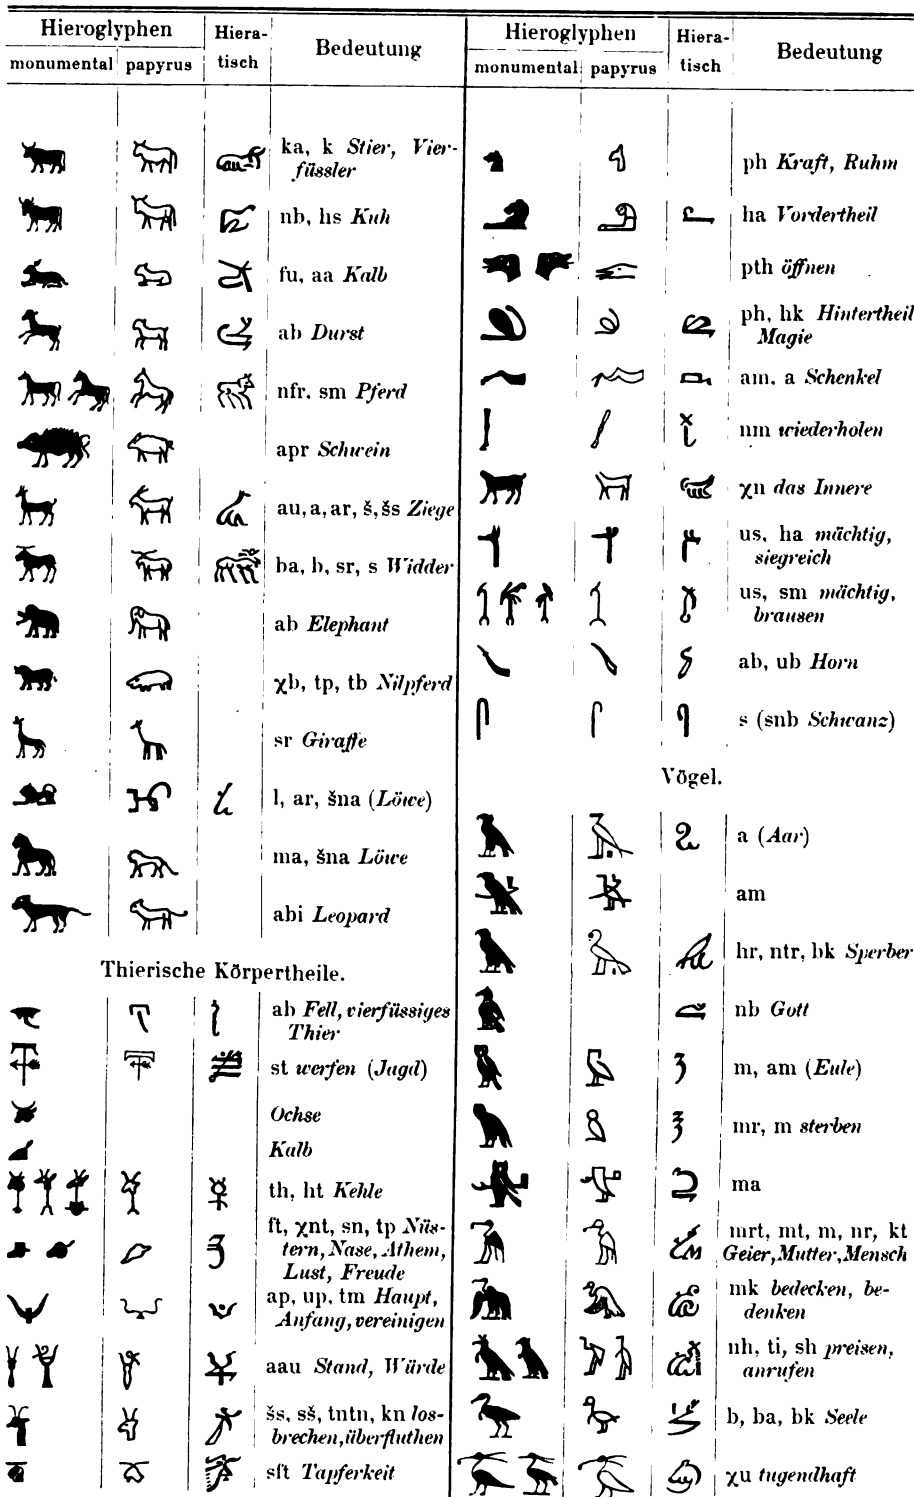 Hieroglyphen
Hiera-
tisch
Bedeutung
monumental papyrus
ka, k Stier, Vier-
füssler
nb, hs Kuh
fu, aa Kalb
ab Durst
nfr, sm Pferd
apr Schwein
au, a, ar, š, šs Ziege
ba, b, sr, s Widder
ab Elephant
χb, tp, tb Nilpferd
sr Giraffe
l, ar, šna (Löwe)
ma, šna Löwe
abi Leopard
Thierische Körpertheile.
ab Fell, vierfüssiges
Thier
st werfen (Jagd)
Ochse
Kalb
th, ht Kehle
ft, χnt, sn, tp Nüs-
tern, Nase, Athem,
Lust, Freude
ap, up, tm Haupt,
Anfang, vereinigen
aau Stand, Würde
šs, sš, tntn, kn los-
brechen, überfluthen
sft Tapferkeit
Hieroglyphen
Hiera-
tisch
Bedeutung
monumental papyrus
ph Kraft, Ruhm
ha Vordertheil
pth öffnen
ph, hk Hintertheil
Magie
am, a Schenkel
nm wiederholen
χn das Innere
us, ha mächtig,
siegreich
us, sm mächtig,
brausen
ab, ub Horn
s (snb Schwanz)
Vögel.
a (Aar)
am
hr, ntr, bk Sperber
nb Gott
m, am (Eule)
mr, m sterben
ma
mrt, mt, m, nr, kt
Geier, Mutter, Mensch
mk bedecken, be-
denken
nh, ti, sh preisen,
anrufen
b, ba, bk Seele
χu tugendhaft